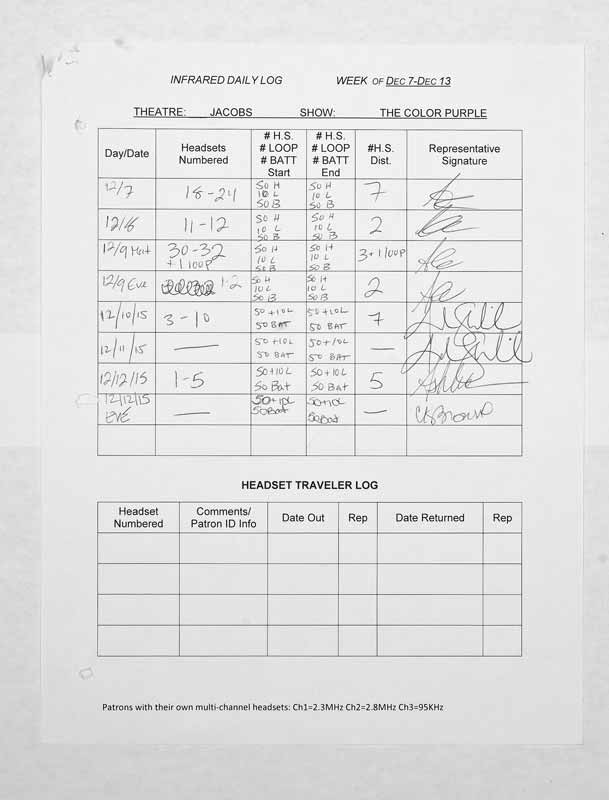 INFRARED DAILY LOG WEEK OF DEC 7-DEC 13
THEATRE: JACOBS SHOW: THE COLOR PURPLE
Day/Date Headsets Numbered # H.S. # LOOP # BATT Start # H.S. # LOOP # BATT End #H.S. Dist. Representative Signature
12/7 18-24 50 H 10 L 50 B 50 H 10 L 50 B 7
12/8 11-12 50 H 10 L 50 B 50 H 10 L 50 B 2
12/9 Mat 30-32 +1 loop 50 H 10 L 50 B 50 H 10 L 50 B 3+1 loop
12/9 Eve 1-2 50 H 10 L 50 B 50 H 10 L 50 B 2
12/10/15 3-10 50+10L 50 BAT 50+10L 50 BAT 7
12/11/15 — 50+10L 50 BAT 50+10L 50 BAT —
12/12/15 1-5 50+10L 50 Bat 50+10L 50 Bat 5
12/12/15 EVE — 50+10L 50Bat 50+10L 50Bat —
HEADSET TRAVELER LOG
Headset Numbered Comments/ Patron ID Info Date Out Rep Date Returned Rep
Patrons with their own multi-channel headsets: Ch1=2.3MHz Ch2=2.8MHz Ch3=95KHz